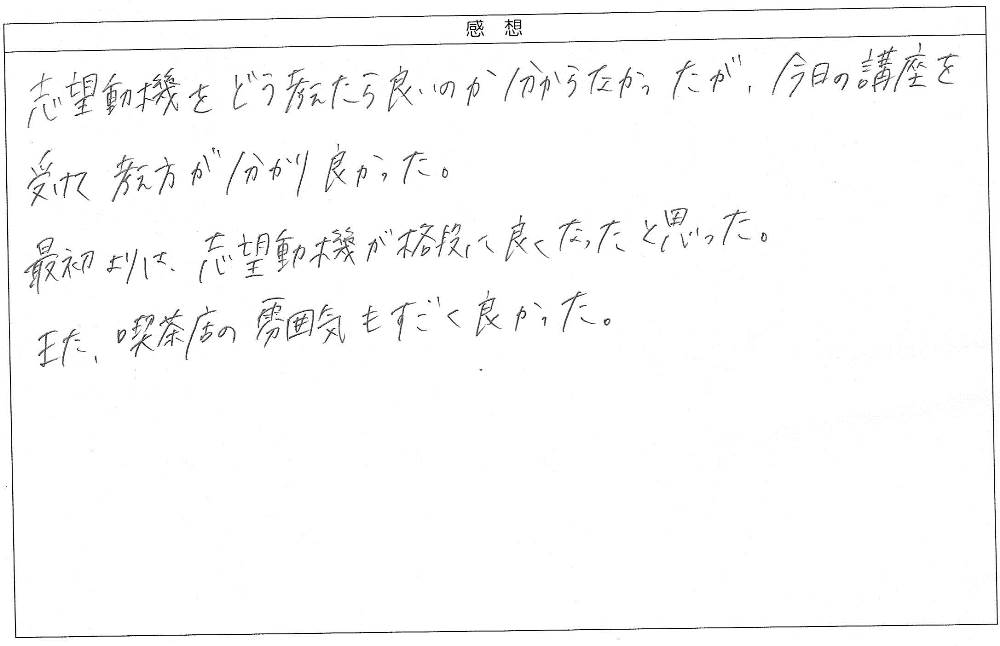 感想
志望動機をどう考えたら良いのか分からなかったが、今日の講座を
受けて考え方が分かり良かった。
最初よりは、志望動機が格段に良くなったと思った。
また、喫茶店の雰囲気もすごく良かった。